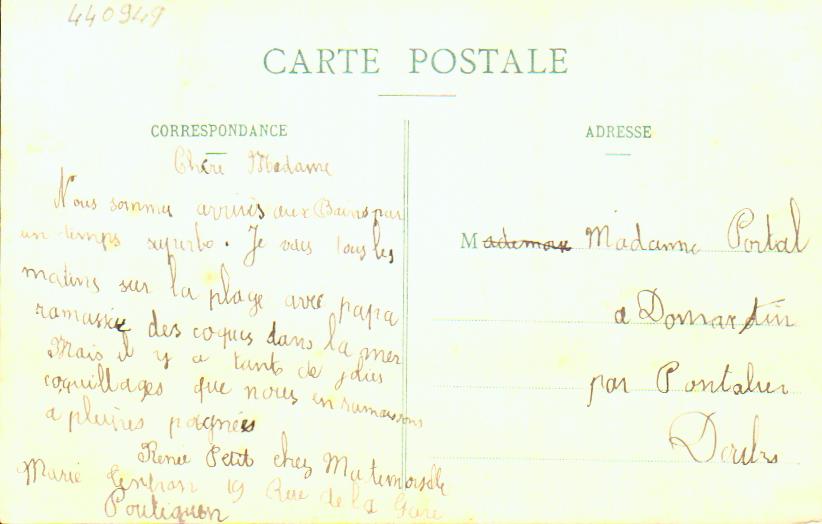 440949
CARTE POSTALE
CORRESPONDANCE
ADRESSE
Chère Madame
Nous sommes arrivés aux Bains par
un temps superbe. Je vais tous les
matins sur la plage avec papa
ramasser des coques dans la mer
Mais il y a tants de jolies
coquillages que nous en ramassons
a pleines pognées
Renée Petit chez Matemoiselle
Marie 19 Rue de la Gare
Pouliguen
Mademoise Madame Portal
a Domartin
par Pontalier
Doubs